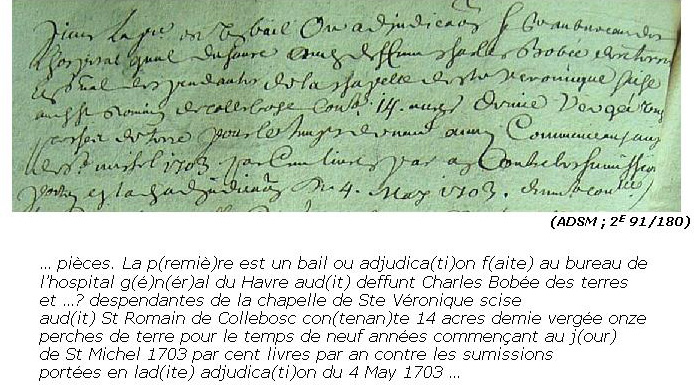 pieces La pre est un bail ou adjudicaon f au bureau de
Lhospital gnal du havre aud deffunt Charles Bobée des terres
et despendantes de la chapelle de ste veronique scise
aud st Romain de collebosc conte 14 acres demie vergée onze
perches de terre pour le temps de neuf années Commenceant au
de st michel 1703 par Cent livres par an Contre les sumissions
portées en lad adjudicaon du 4 May 1703.
(ADSM ; 2E 91/180)
... pièces. La p(remiè)re est un bail ou adjudica(ti)on f(aite) au bureau de
l'hospital g(é)n(ér)al du Havre aud(it) deffunt Charles Bobée des terres
et ...? despendantes de la chapelle de Ste Véronique scise
aud(it) St Romain de Collebosc con(tenan)te 14 acres demie vergée onze
perches de terre pour le temps de neuf années commençant au j(our)
de St Michel 1703 par cent livres par an contre les sumissions
portées en lad(ite) adjudica(ti)on du 4 May 1703 ...